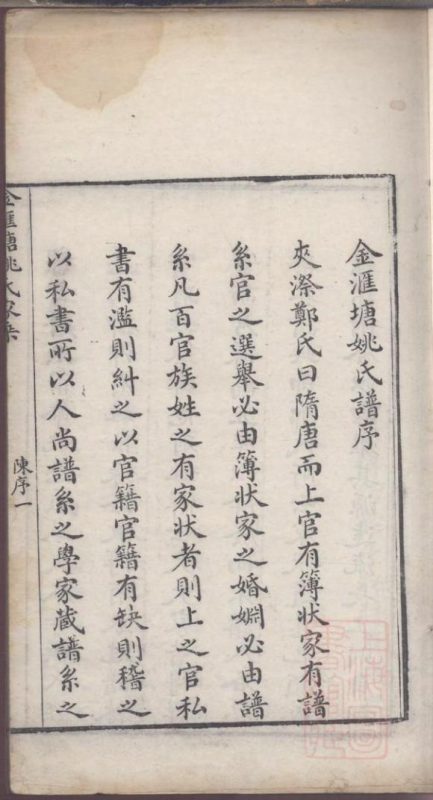 金滙塘姚氏譜序
夾漈鄭氏曰隋唐而上官有簿状家有譜
系官之選舉必由簿状家之婚婣必由譜
系凡百官族姓之有家状者則上之官私
書有濫則糾之以官籍官籍有缺則稽之
以私書所以人尚譜系之學家蔵譜系之
金滙塘姚氏家乘
陳序一